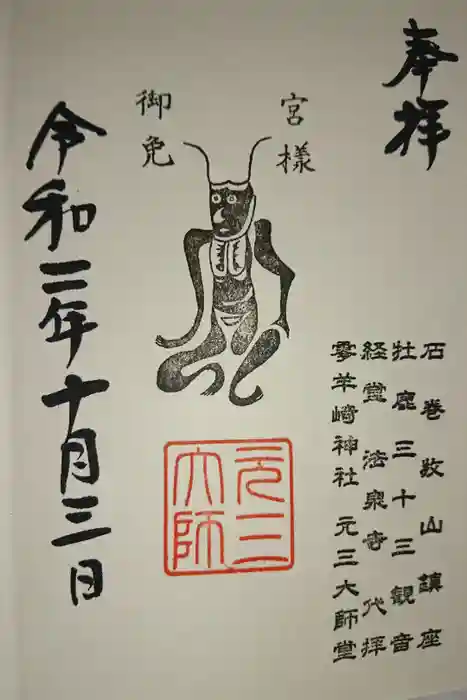 奉拝
宮様
御免
石巻牧山鎮座
牡鹿三十三観音
経堂法泉寺代拝
零羊崎神社 元三大師堂
元三
大師
令和二年十月三日